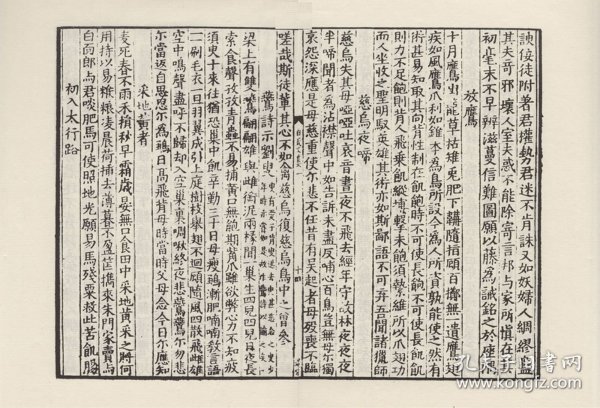 諛佞徒附著君權勢君迷不肯誅又如妖婦人綢繆蠱
其夫奇邪壞人室夫惑不能除寄言邦與家所慎在其
初毫末不早辨滋蔓信難圖願以藤為誡銘之於座隅
放鷹
十月鷹出籠草枯雉兔肥下韝隨指顧百擲無一遺鷹翅
疾如風鷹爪利如錐本為鳥所設今為人所資孰能使之然有
術甚易知取其向背性制在飢飽時不可使長飽不可使長飢飢
則力不足飽則背人飛乘飢縱搏擊未飽須縶維所以爪翅功
而人坐收之聖明馭英雄其術亦如斯鄙語不可棄吾聞諸獵師
慈烏夜啼
慈烏失其母啞啞吐哀音晝夜不飛去經年守故林夜夜夜
半啼聞者為沾襟聲中如告訴未盡反哺心百鳥豈無母爾獨
哀怨深應是母慈重使爾悲不任昔有吳起者母歿喪不臨
嗟哉斯徒輩其心不如禽慈烏復慈烏鳥中之曾參
鷰詩示劉叟
梁上有雙鷰翩翩雄與雌銜泥兩椽間一巢生四兒四兒日夜長
索食聲孜孜青蟲不易捕黃口無飽期觜爪雖欲弊心力不知疲
須臾十來往猶恐巢中飢辛勤三十日母瘦雛漸肥喃喃教言語
一一刷毛衣一旦羽翼成引上庭樹枝舉翅不回顧隨風四散飛雌雄
空中鳴聲盡呼不歸却入空巢裏啁啾終夜悲鷰鷰爾勿悲
爾當返自思思爾為雛日高飛背母時當時父母念今日爾應知
采地黃者
麥死春不雨禾損秋早霜歲晏無口食田中采地黃采之將何
用持以易餱糧凌晨荷插去薄暮不盈筐擕來朱門家賣與
白面郎與君啖肥馬可使照地光願易馬殘粟救此苦飢腸
初入太行路